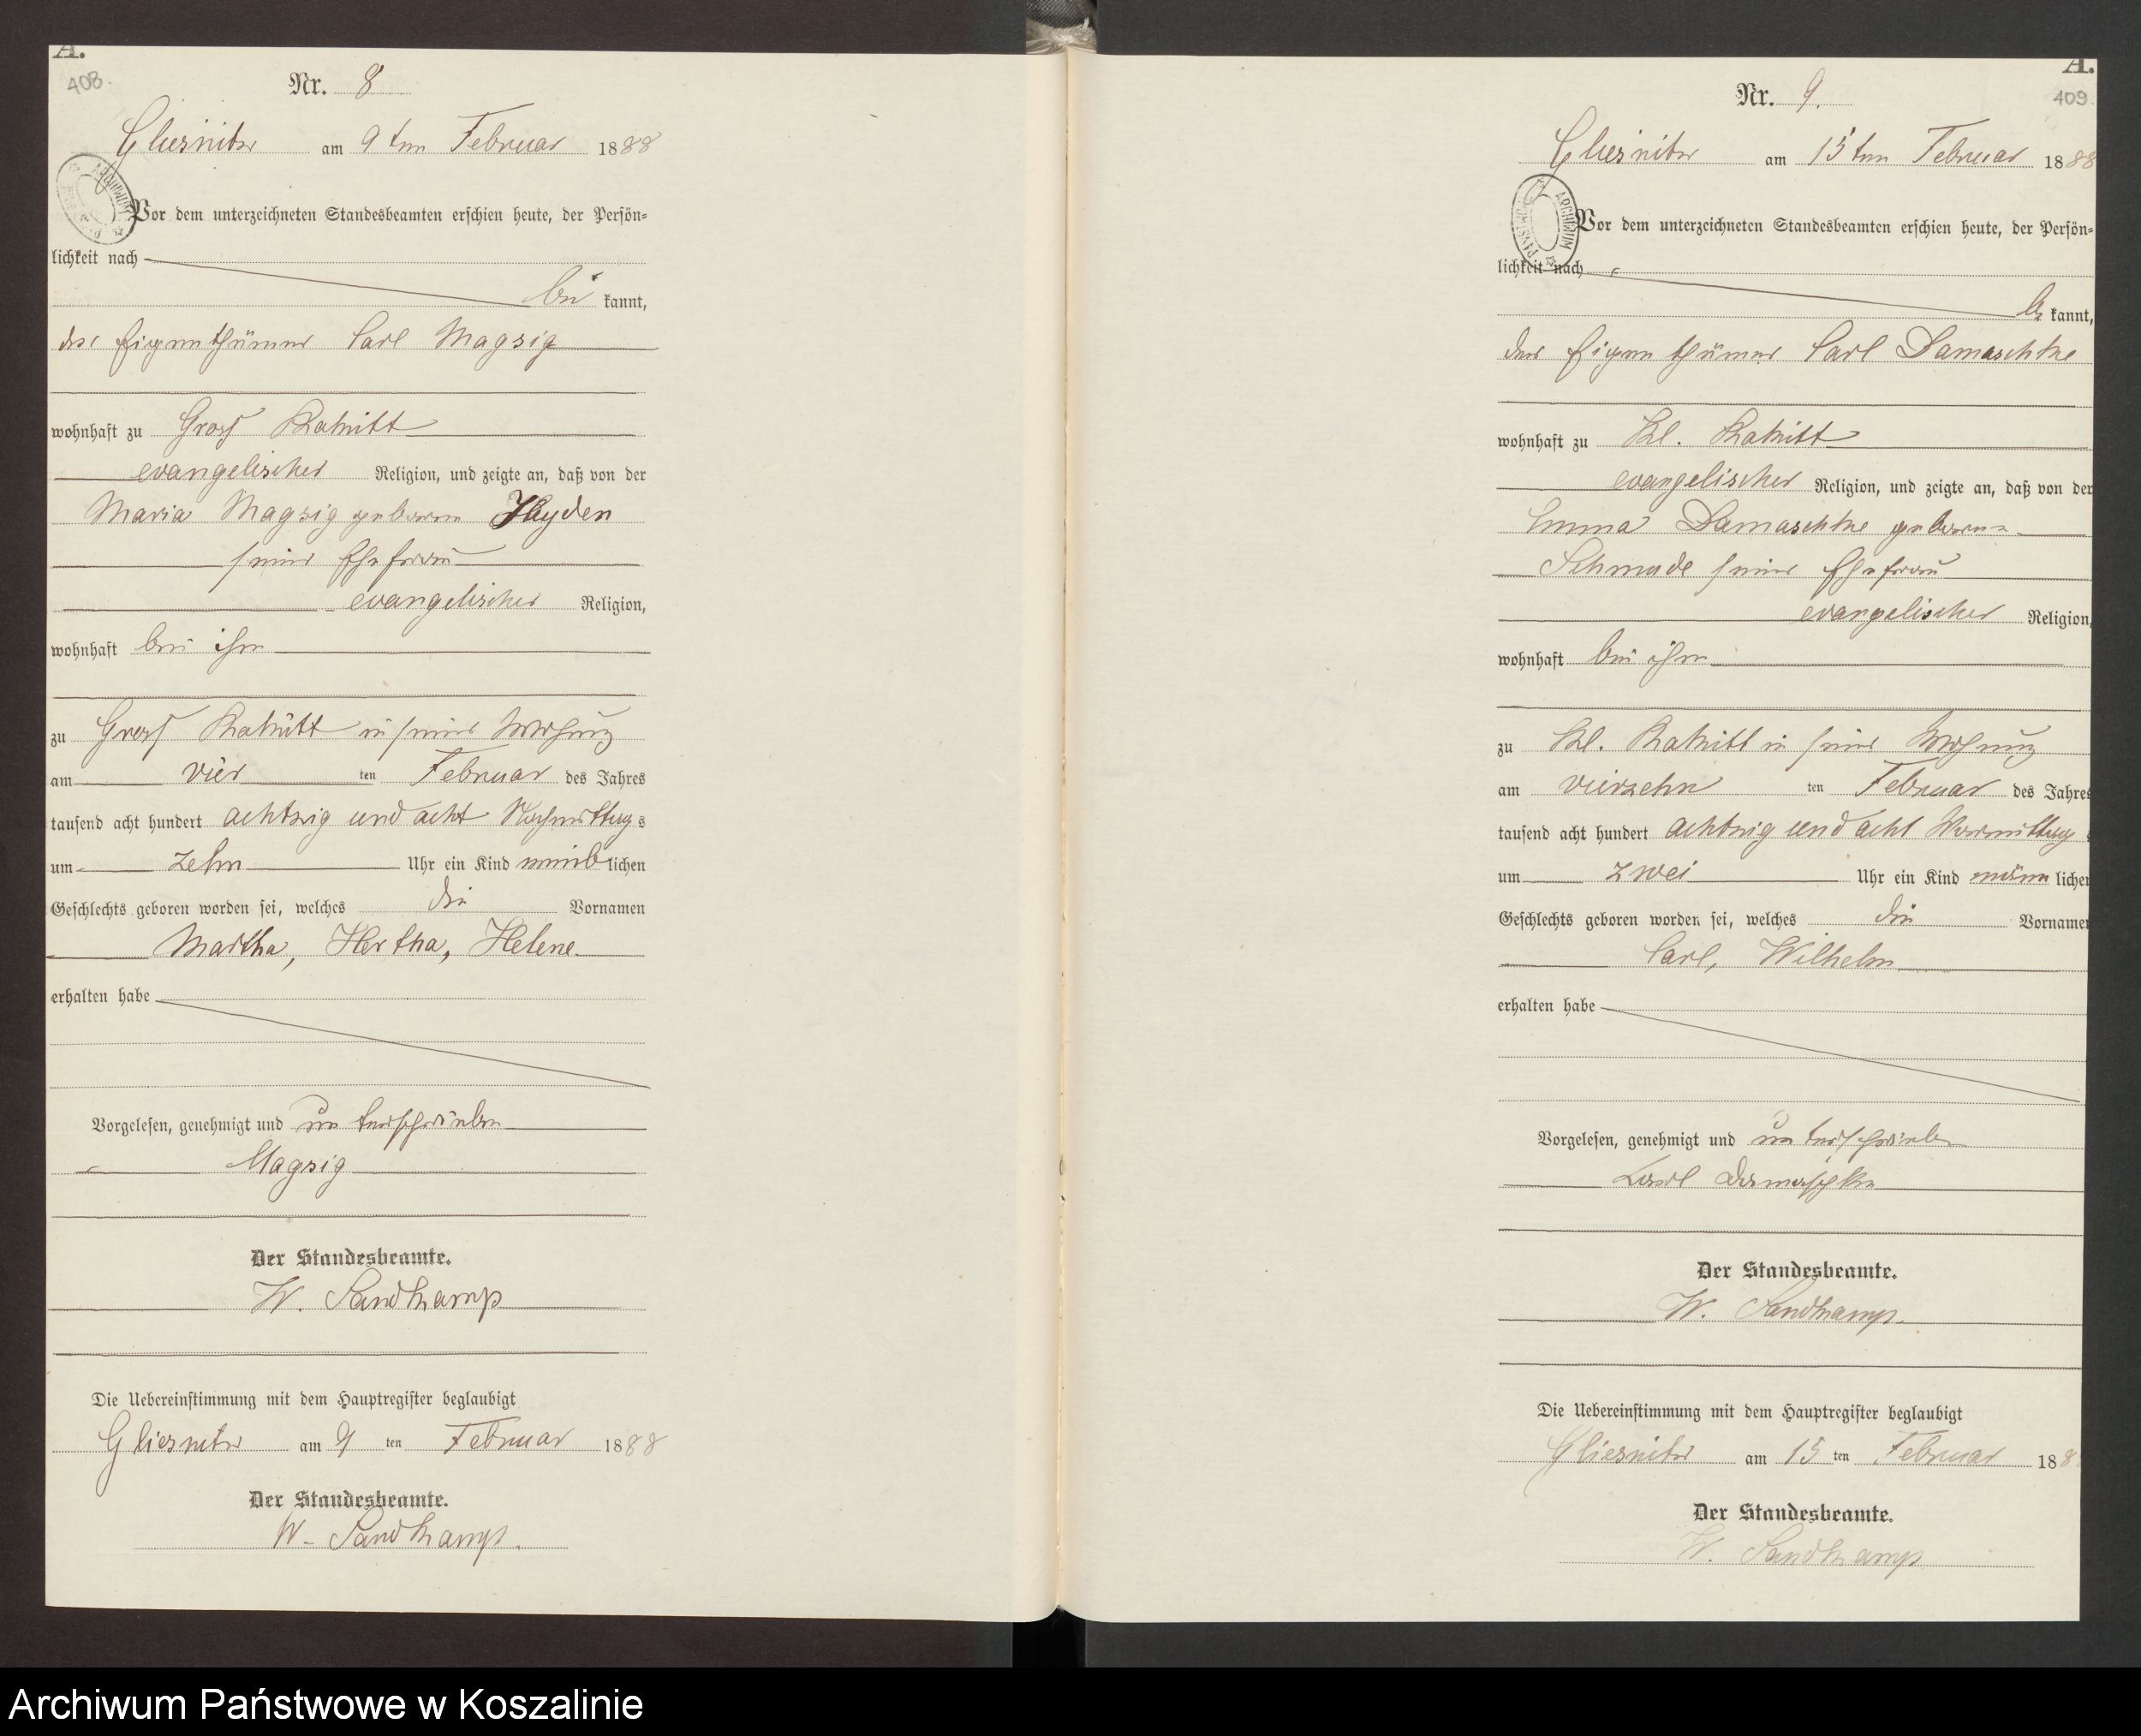 A.
408.
Nr. 8
Gliesnitz am 9ten Februar 1888
Vor dem unterzeichneten Standesbeamten erschien heute, der Persön=
lichkeit nach
be kannt,
der Eigenthümer Carl Magsig
wohnhaft zu Gross Rakitt
evangelischer Religion, und zeigte an, daß von der
Maria Magsig geborne Heyden
seiner Ehefrau
evangelischer Religion,
wohnhaft bei ihm
zu Gross Rakitt in seiner Wohnung
am vier ten Februar des Jahres
tausend acht hundert achtzig und acht Nachmittags
um zehn Uhr ein Kind weiblichen
Geschlechts geboren worden sei, welches die Vornamen
Martha, Hertha, Helene
erhalten habe
Vorgelesen, genehmigt und unterschrieben
Magsig
Der Standesbeamte.
W. Sandkamp
Die Uebereinstimmung mit dem Hauptregister beglaubigt
Gliesnitz am 9 ten Februar 1888
Der Standesbeamte.
W. Sandkamp.
A.
409
Nr. 9.
Gliesnitz am 15ten Februar 1888
ARCHIWUM
Vor dem unterzeichneten Standesbeamten erschien heute, der Persön=
lichkeit nach
be kannt,
der Eigenthümer Carl Damaschke
wohnhaft zu Kl. Rakitt
evangelischer Religion, und zeigte an, daß von der
Emma Damaschke geborne
Schmude seiner Ehefrau
evangelischer Religion,
wohnhaft bei ihm
zu Kl. Rakitt in seiner Wohnung
am vierzehn ten Februar des Jahres
tausend acht hundert achtzig und acht Vormittag
um zwei Uhr ein Kind männlichen
Geschlechts geboren worden sei, welches die Vornamen
Carl, Wilhelm
erhalten habe
Vorgelesen, genehmigt und unterschrieben
Karl Damaschke
Der Standesbeamte.
W. Sandkamp.
Die Uebereinstimmung mit dem Hauptregister beglaubigt
Gliesnitz am 15 ten Februar 188
Der Standesbeamte.
W. Sandkamp
Archiwum Państwowe w Koszalinie